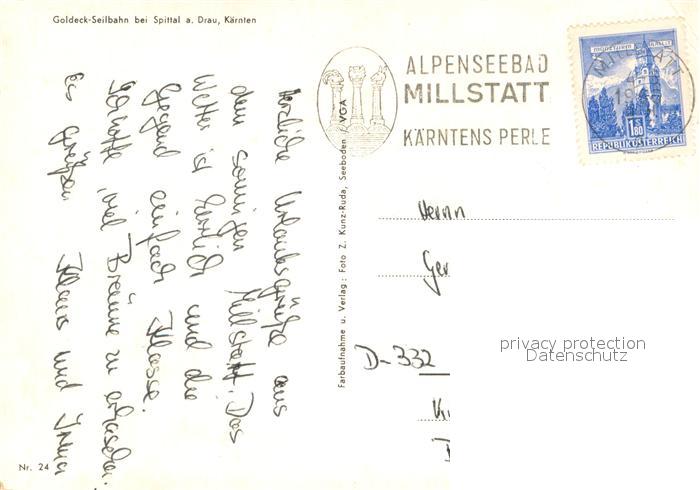 Goldeck-Seilbahn bei Spittal a. Drau, Kärnten
Herzliche Urlaubsgrüße aus
dem sonnigen Millstatt. Das
Wetter ist herrlich und die
Gegend einfach Klasse.
Ich hoffe, viel Bräune zu erhaschen.
Es grüßen Klaus und
Nr. 24
Farbaufnahme u. Verlag: Foto Z. Kunz-Ruda, Seeboden / VGA
ALPENSEEBAD
MILLSTATT
KÄRNTENS PERLE
MILLSTATT
1.80
REPUBLIK ÖSTERREICH
Herrn
Ger
D-332
privacy protection
Datenschutz